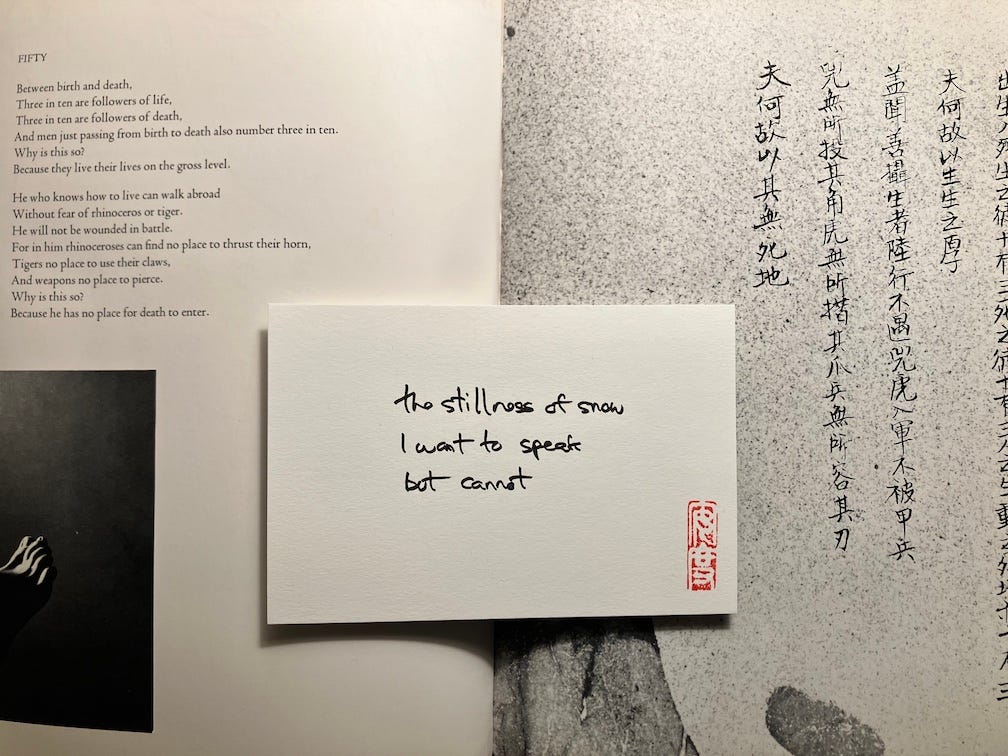 FIFTY
Between birth and death,
Three in ten are followers of life,
Three in ten are followers of death,
And men just passing from birth to death also number three in ten.
Why is this so?
Because they live their lives on the gross level.
He who knows how to live can walk abroad
Without fear of rhinoceros or tiger.
He will not be wounded in battle.
For in him rhinoceroses can find no place to thrust their horn,
Tigers no place to use their claws,
And weapons no place to pierce.
Why is this so?
Because he has no place for death to enter.
the stillness of snow
I want to speak
but cannot
夫何故以生生之厚
蓋聞善攝生者陸行不遇兕虎入軍不被甲兵
兕無所投其角虎無所措其爪兵無所容其刃
夫何故以其無死地